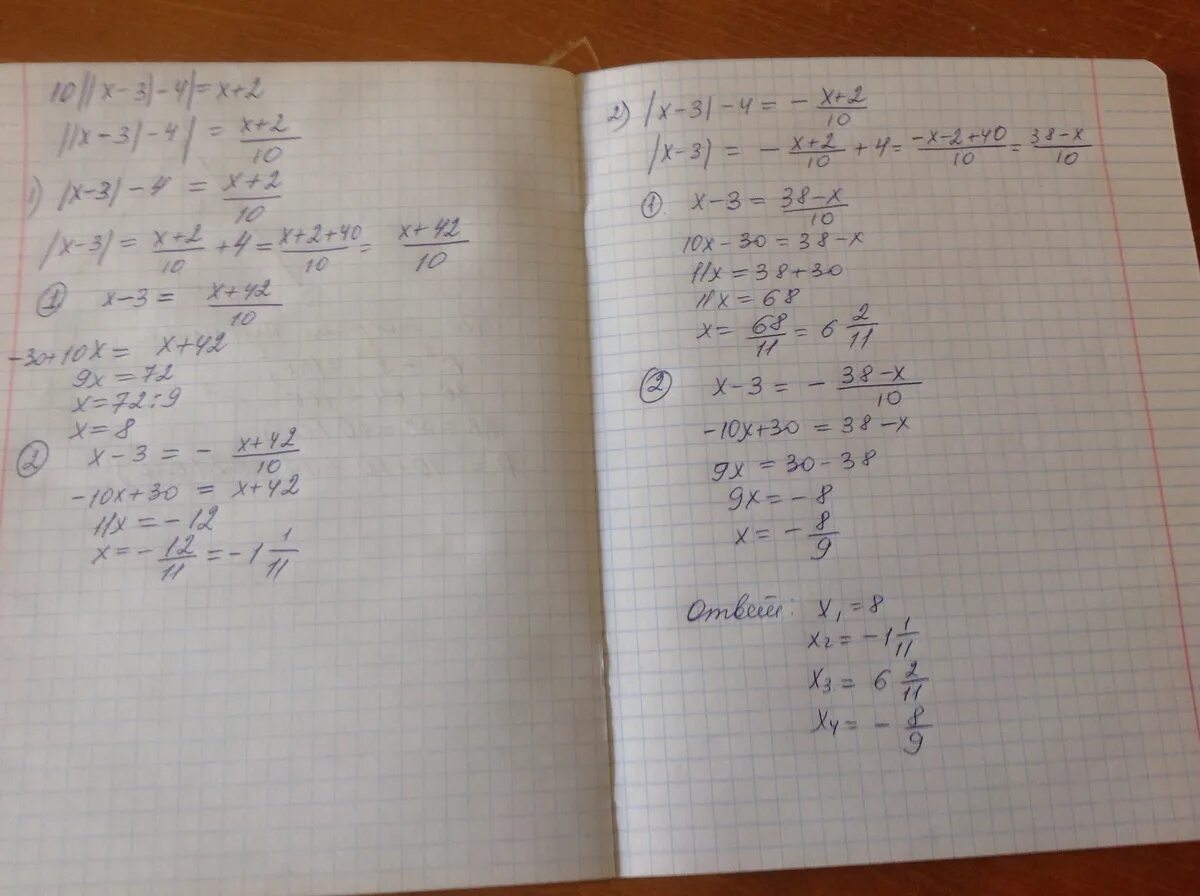 10||x-3|-4|=x+2
||x-3|-4| = \frac{x+2}{10}
1) |x-3|-4 = \frac{x+2}{10}
|x-3| = \frac{x+2}{10} + 4 = \frac{x+2+40}{10} = \frac{x+42}{10}
① x-3 = \frac{x+42}{10}
-30+10x = x+42
9x = 72
x = 72:9
x = 8
② x-3 = - \frac{x+42}{10}
-10x+30 = x+42
11x = -12
x = - \frac{12}{11} = -1 \frac{1}{11}
2) |x-3|-4 = - \frac{x+2}{10}
|x-3| = - \frac{x+2}{10} + 4 = \frac{-x-2+40}{10} = \frac{38-x}{10}
① x-3 = \frac{38-x}{10}
10x-30 = 38-x
11x = 38+30
11x = 68
x = \frac{68}{11} = 6 \frac{2}{11}
② x-3 = - \frac{38-x}{10}
-10x+30 = 38-x
9x = 30-38
9x = -8
x = - \frac{8}{9}
Ответ: x₁ = 8
x₂ = -1 \frac{1}{11}
x₃ = 6 \frac{2}{11}
x₄ = - \frac{8}{9}